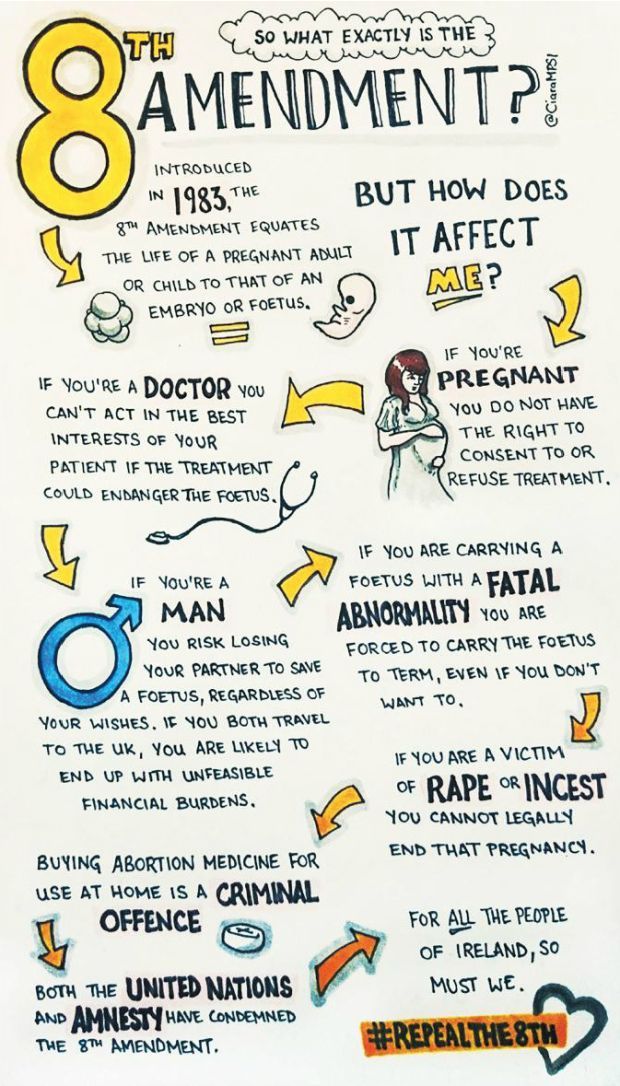 SO WHAT EXACTLY IS THE
8TH
AMENDMENT?
@CiaraMPSI
INTRODUCED
IN 1983, THE
8TH AMENDMENT EQUATES
THE LIFE OF A PREGNANT ADULT
OR CHILD TO THAT OF AN
EMBRYO OR FOETUS.
=
BUT HOW DOES
IT AFFECT
ME?
IF YOU'RE
PREGNANT
YOU DO NOT HAVE
THE RIGHT TO
CONSENT TO OR
REFUSE TREATMENT.
IF YOU'RE A DOCTOR YOU
CAN'T ACT IN THE BEST
INTERESTS OF YOUR
PATIENT IF THE TREATMENT
COULD ENDANGER THE FOETUS.
IF YOU'RE A
MAN
YOU RISK LOSING
YOUR PARTNER TO SAVE
A FOETUS, REGARDLESS OF
YOUR WISHES. IF YOU BOTH TRAVEL
TO THE UK, YOU ARE LIKELY TO
END UP WITH UNFEASIBLE
FINANCIAL BURDENS.
IF YOU ARE CARRYING A
FOETUS WITH A FATAL
ABNORMALITY YOU ARE
FORCED TO CARRY THE FOETUS
TO TERM, EVEN IF YOU DON'T
WANT TO.
IF YOU ARE A VICTIM
OF RAPE OR INCEST
YOU CANNOT LEGALLY
END THAT PREGNANCY.
BUYING ABORTION MEDICINE FOR
USE AT HOME IS A CRIMINAL
OFFENCE
BOTH THE UNITED NATIONS
AND AMNESTY HAVE CONDEMNED
THE 8TH AMENDMENT.
FOR ALL THE PEOPLE
OF IRELAND, SO
MUST WE.
#REPEALTHE8TH